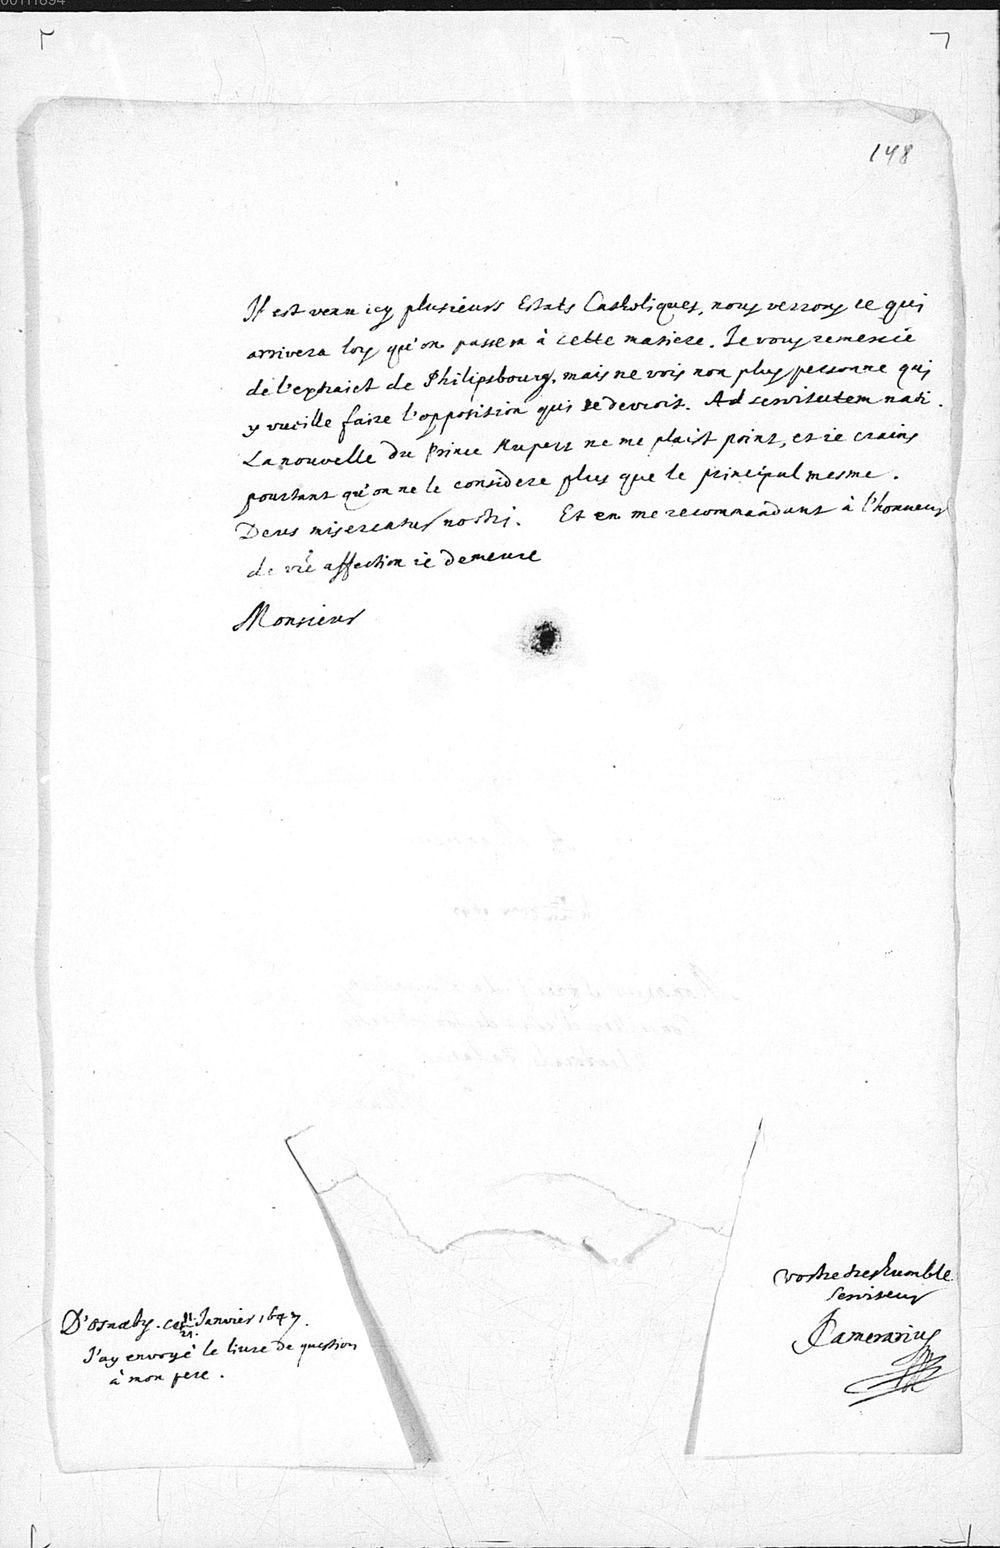 00111894
148
Il est venu icy plusieurs Estats Catholiques, nous verrons ce qui
arrivera lors qu'on passera à cette matiere. Je vous remercie
de l'extraict de Philipsbourg, mais ne vois non plus personne qui
y vueille faire l'opposition qui se devroit. Ad servitutem nati.
La nouvelle du Prince Rupert ne me plaist point, et ie crains
pourtant qu'on ne le considere plus que le principal mesme.
Deus misereatur nostri. Et en me recommandant à l'honneur
de vre affection ie demeure
Monsieur
vostre tres humble
serviteur
Camerarius
D'Osnaby. ce 11/21. Janvier 1647.
J'ay envoyé le livre de question
à mon pere.